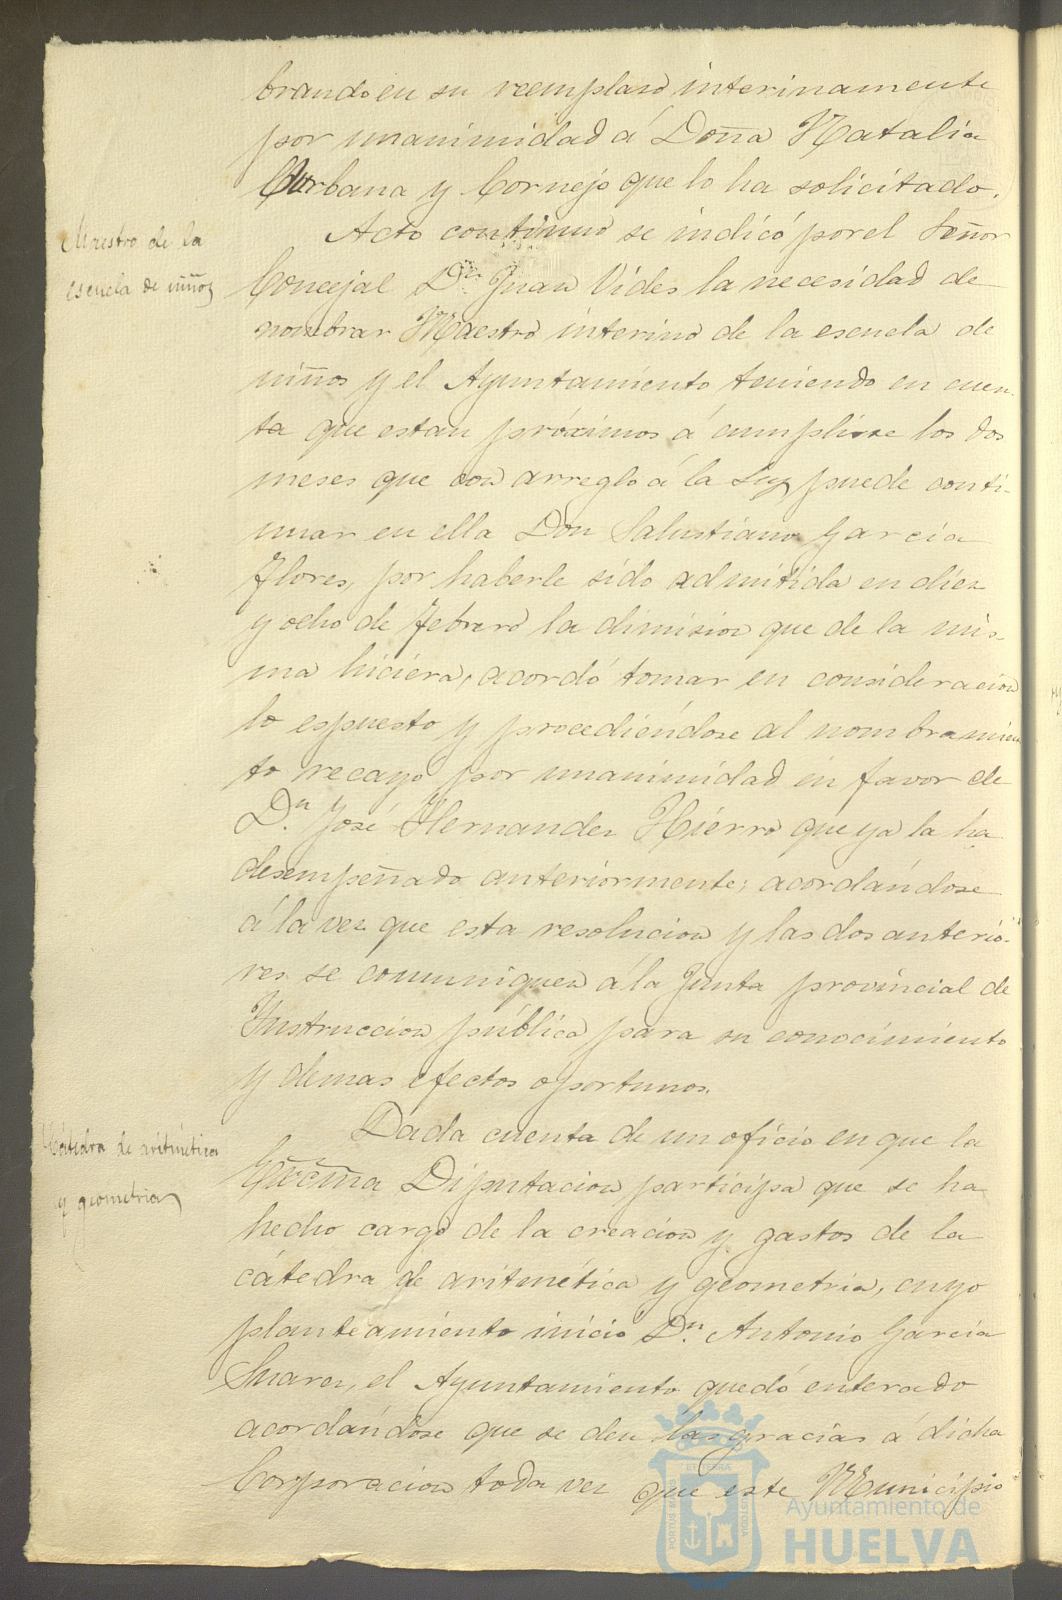 brando en su reemplazo interinamente
por unanimidad á Doña Natalia
Urbana y Cornejo que lo ha solicitado.
Maestro de la
escuela de niños
Acto continuo se indicó por el Señor
Concejal Dn Juan Vides la necesidad de
nombrar Maestro interino de la escuela de
niños y el Ayuntamiento teniendo en cuen-
ta que estan próximos á cumplirse los dos
meses que con arreglo á la Ley puede conti-
nuar en ella Don Salustiano Garcia
Flores, por haberle sido admitida en diez
y ocho de Febrero la dimision que de la mis-
ma hiciera, acordó tomar en consideracion
lo espuesto y procediéndose al nombramien
to recayó por unanimidad en favor de
Dn. José Hernandez Hierro que ya la ha
desempeñado anteriormente; acordándose
á la vez que esta resolucion y las dos anterio-
res se comuniquen á la Junta provincial de
Instruccion pública para su conocimiento
y demas efectos oportunos.
Cátedra de aritmética
y geometria
Dada cuenta de un oficio en que la
Excma Diputacion participa que se ha
hecho cargo de la creacion y gastos de la
cátedra de aritmética y geometria, cuyo
planteamiento inició Dn. Antonio Garcia
Suarez, el Ayuntamiento quedó enterado
acordándose que se den las gracias á dicha
Corporacion toda vez que este Municipio
PORTUS MARIS
ET TERRA
CUSTODIA
Ayuntamiento de
HUELVA